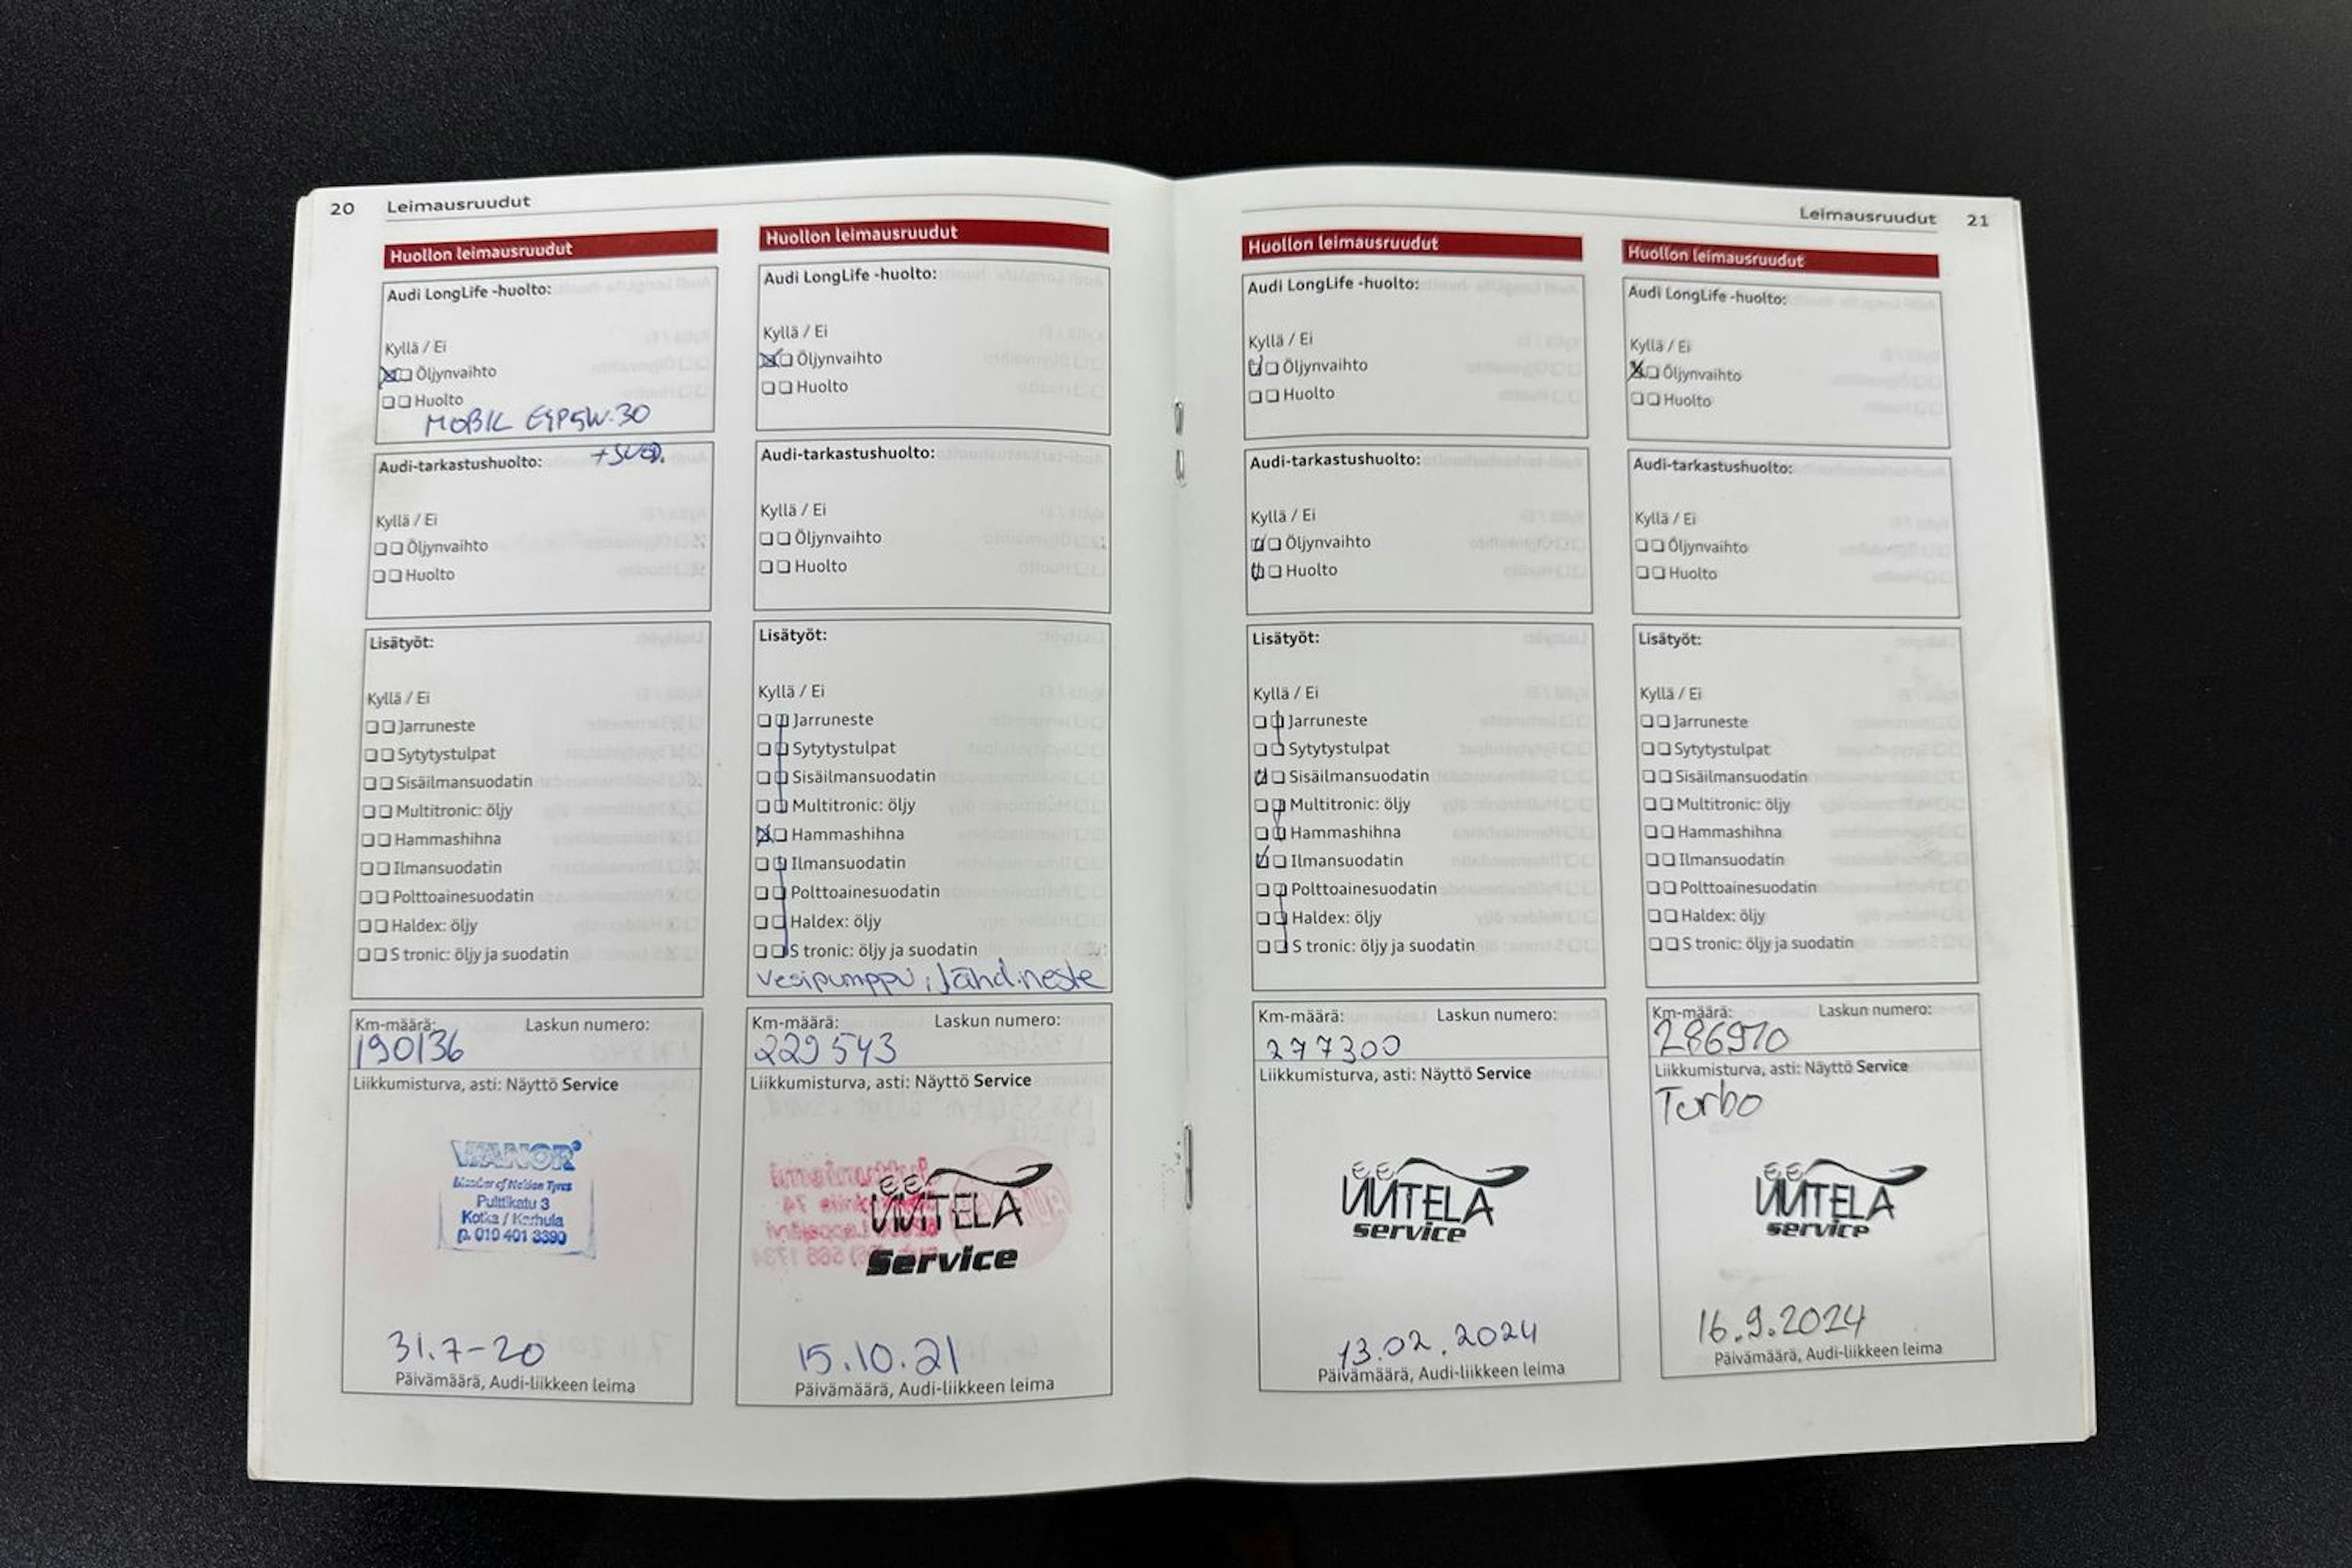 20 Leimausruudut
Huollon leimausruudut
Audi LongLife -huolto:
Kyllä / Ei
Öljynvaihto
Huolto
MOBIL ESP5W-30
+SUOD.
Audi-tarkastushuolto:
Kyllä / Ei
Öljynvaihto
Huolto
Lisätyöt:
Kyllä / Ei
Jarruneste
Sytytystulpat
Sisäilmansuodatin
Multitronic: öljy
Hammashihna
Ilmansuodatin
Polttoainesuodatin
Haldex: öljy
S tronic: öljy ja suodatin
Km-määrä: Laskun numero:
190136
Liikkumisturva, asti: Näyttö Service
VIANOR
Member of Nokian Tyres
Pulttikatu 3
Kotka / Karhula
p. 010 401 3390
31.7-20
Päivämäärä, Audi-liikkeen leima
Huollon leimausruudut
Audi LongLife -huolto:
Kyllä / Ei
Öljynvaihto
Huolto
Audi-tarkastushuolto:
Kyllä / Ei
Öljynvaihto
Huolto
Lisätyöt:
Kyllä / Ei
Jarruneste
Sytytystulpat
Sisäilmansuodatin
Multitronic: öljy
Hammashihna
Ilmansuodatin
Polttoainesuodatin
Haldex: öljy
S tronic: öljy ja suodatin
Vesipumppu, Jähd.neste
Km-määrä: Laskun numero:
229543
Liikkumisturva, asti: Näyttö Service
UUTELA
Service
15.10.21
Päivämäärä, Audi-liikkeen leima
Leimausruudut 21
Huollon leimausruudut
Audi LongLife -huolto:
Kyllä / Ei
Öljynvaihto
Huolto
Audi-tarkastushuolto:
Kyllä / Ei
Öljynvaihto
Huolto
Lisätyöt:
Kyllä / Ei
Jarruneste
Sytytystulpat
Sisäilmansuodatin
Multitronic: öljy
Hammashihna
Ilmansuodatin
Polttoainesuodatin
Haldex: öljy
S tronic: öljy ja suodatin
Km-määrä: Laskun numero:
277300
Liikkumisturva, asti: Näyttö Service
UUTELA
service
13.02.2024
Päivämäärä, Audi-liikkeen leima
Huollon leimausruudut
Audi LongLife -huolto:
Kyllä / Ei
Öljynvaihto
Huolto
Audi-tarkastushuolto:
Kyllä / Ei
Öljynvaihto
Huolto
Lisätyöt:
Kyllä / Ei
Jarruneste
Sytytystulpat
Sisäilmansuodatin
Multitronic: öljy
Hammashihna
Ilmansuodatin
Polttoainesuodatin
Haldex: öljy
S tronic: öljy ja suodatin
Km-määrä: Laskun numero:
286970
Liikkumisturva, asti: Näyttö Service
Turbo
UUTELA
service
16.9.2024
Päivämäärä, Audi-liikkeen leima